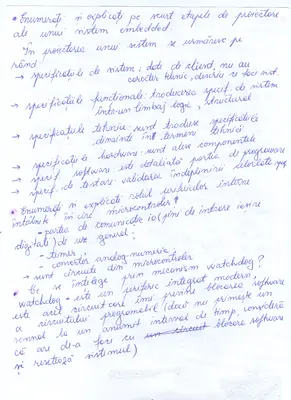 • Enumerați și explicați pe scurt etapele de proiectare
ale unui sistem embedded.
În proiectarea unui sistem se urmăresc pe
rând:
→ specificațiile de sistem: date de client, nu au
caracter tehnic, descriu ce face sist.
→ specificațiile funcționale: traducerea specif. de sistem
într-un limbaj logic, structurat
→ specificațiile tehnice: sunt traduse specificațiile
denainte în termeni tehnici
→ specificații hardware: sunt alese componentele
→ specif. software: este detaliată partea de programare
→ specif. de testare: validarea îndeplinirii
• Enumerați și explicați rolul perifericelor interne
întâlnite în cire microcontroler?
- partea de comunicație io (pini de intrare ieșire
digitali) de uz general;
- timer;
- convertor analog-numeric
→ sunt circuite din microcontroler
• Ce se înțelege prin mecanism watchdog?
Watchdog - este un periferic integrat modern,
este acel circuit care îmi previne blocarea software
a circuitului programabil (dacă nu primește un
semnal la un anumit interval de timp, consideră
că are de-a face cu un circuit blocare software
și resetează sistemul)